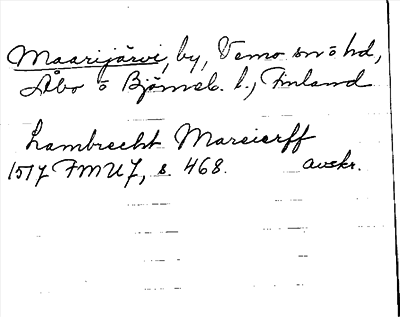 Maarijärvi, by, Vemo sn o hd,
Åbo o Björneb. l., Finland
Lambrecht Mareierff
1517 FMU 7, s. 468. avskr.